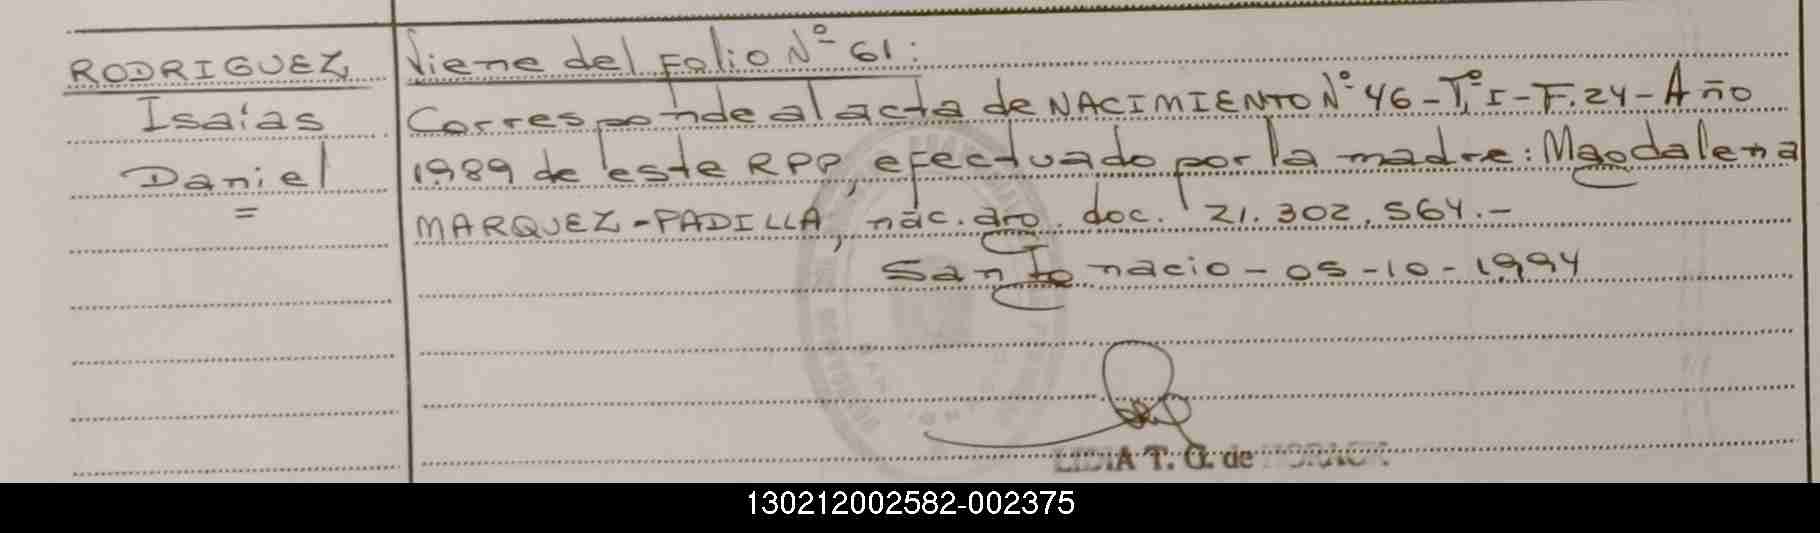 RODRIGUEZ
Isaías
Daniel
=
Viene del Folio Nº 61:
Corresponde al acta de NACIMIENTO Nº 46-Tº I-F.24-Año
1.989 de este RPP, efectuado por la madre: Magdalena
MARQUEZ-PADILLA, nac. arg. doc. 21.302.564.-
San Ignacio-05-10-1.994
LIDIA T. G. de
130212002582-002375